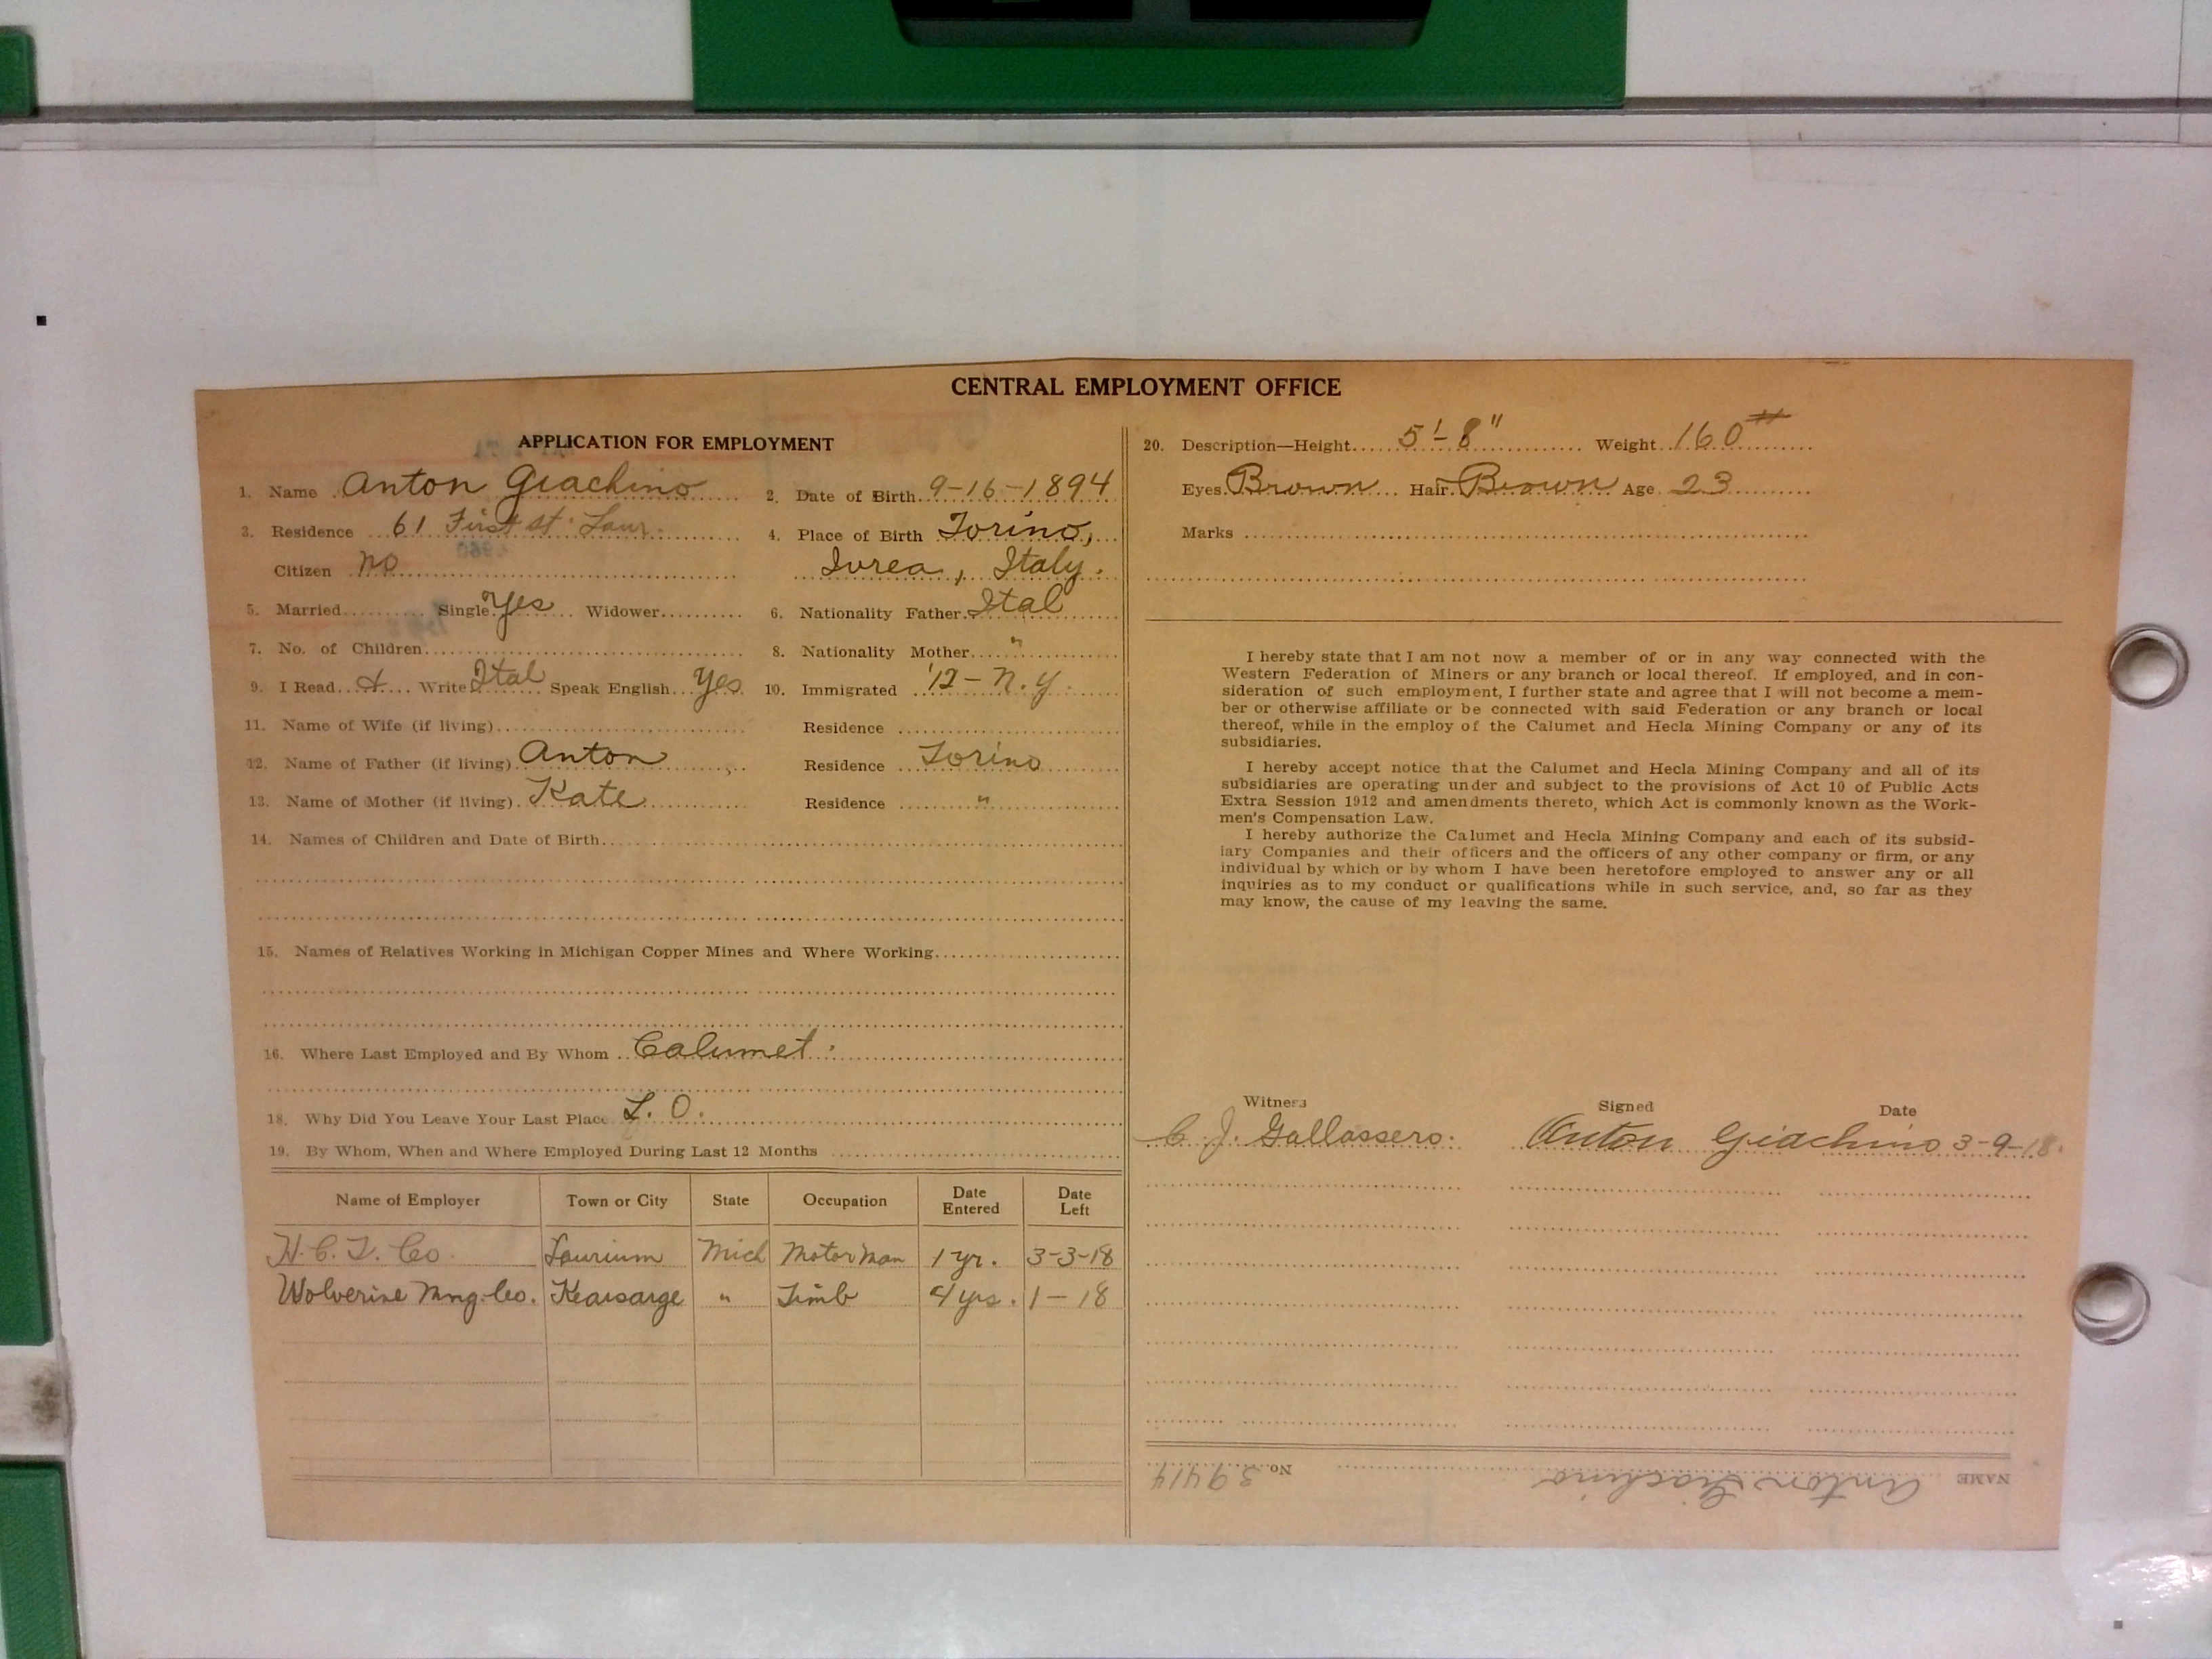 CENTRAL EMPLOYMENT OFFICE
APPLICATION FOR EMPLOYMENT
1. Name Anton Giachino 2. Date of Birth 9-16-1894
3. Residence 61 First st. Laur. 4. Place of Birth Torino,
Citizen no Ivrea, Italy.
5. Married Single Yes Widower 6. Nationality Father Ital
7. No. of Children 8. Nationality Mother "
9. I Read & Write Ital Speak English Yes 10. Immigrated '12 - N.Y.
11. Name of Wife (if living) Residence
12. Name of Father (if living) Anton Residence Torino
13. Name of Mother (if living) Kate Residence "
14. Names of Children and Date of Birth
15. Names of Relatives Working in Michigan Copper Mines and Where Working
16. Where Last Employed and By Whom Calumet
18. Why Did You Leave Your Last Place L. O.
19. By Whom, When and Where Employed During Last 12 Months
Name of Employer Town or City State Occupation Date Entered Date Left
H. C. T. Co. Laurium Mich Motor Man 1 yr. 3-3-18
Wolverine Mng. Co. Kearsarge " Timb 4 yrs. 1-18
20. Description—Height 5'-8" Weight 160#
Eyes Brown Hair Brown Age 23
Marks
I hereby state that I am not now a member of or in any way connected with the
Western Federation of Miners or any branch or local thereof. If employed, and in con-
sideration of such employment, I further state and agree that I will not become a mem-
ber or otherwise affiliate or be connected with said Federation or any branch or local
thereof, while in the employ of the Calumet and Hecla Mining Company or any of its
subsidiaries.
I hereby accept notice that the Calumet and Hecla Mining Company and all of its
subsidiaries are operating under and subject to the provisions of Act 10 of Public Acts
Extra Session 1912 and amendments thereto, which Act is commonly known as the Work-
men's Compensation Law.
I hereby authorize the Calumet and Hecla Mining Company and each of its subsid-
iary Companies and their officers and the officers of any other company or firm, or any
individual by which or by whom I have been heretofore employed to answer any or all
inquiries as to my conduct or qualifications while in such service, and, so far as they
may know, the cause of my leaving the same.
Witness Signed Date
C. J. Gallassero. Anton Giachino 3-9-18.
NAME Anton Giachino No. 39414